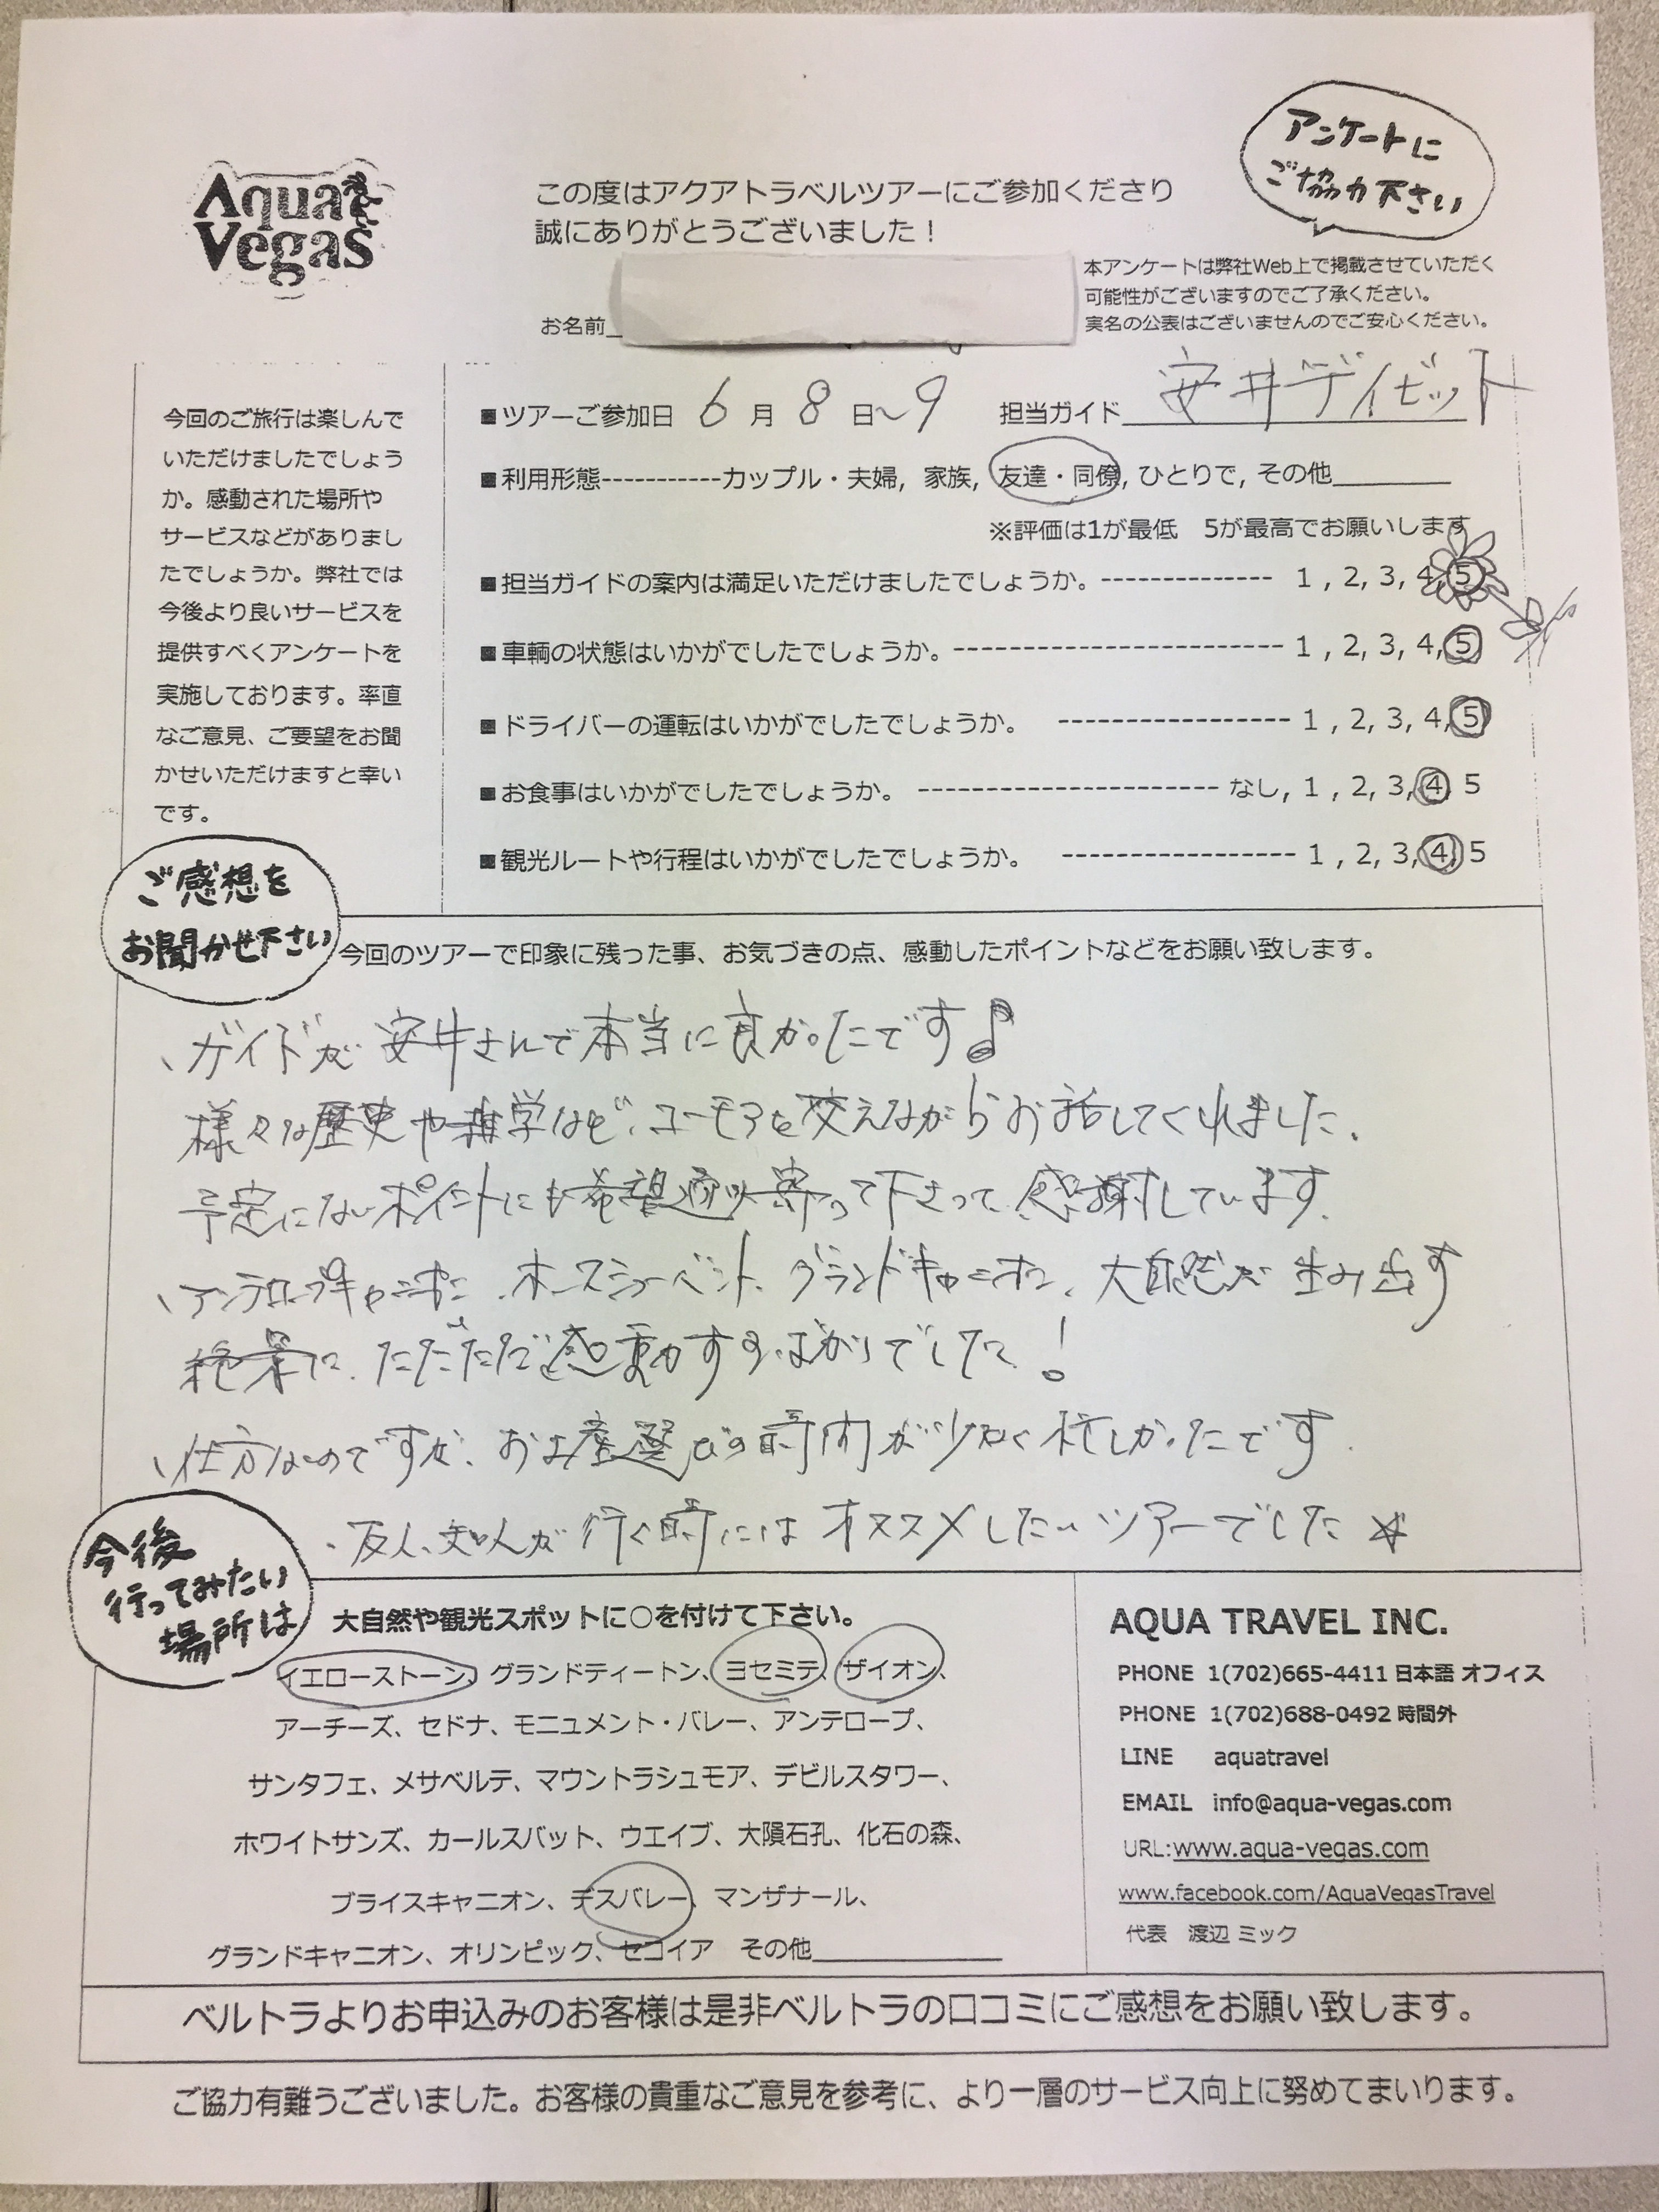 Aqua
Vegas
アンケートに
ご協力下さい
この度はアクアトラベルツアーにご参加くださり
誠にありがとうございました！
本アンケートは弊社Web上で掲載させていただく
可能性がございますのでご了承ください。
実名の公表はございませんのでご安心ください。
お名前
今回のご旅行は楽しんで
いただけましたでしょう
か。感動された場所や
サービスなどがありまし
たでしょうか。弊社では
今後より良いサービスを
提供すべくアンケートを
実施しております。率直
なご意見、ご要望をお聞
かせいただけますと幸い
です。
■ツアーご参加日 6 月 8 日〜9 担当ガイド 安井デイビット
■利用形態-----------カップル・夫婦, 家族, 友達・同僚, ひとりで, その他________
※評価は1が最低 5が最高でお願いします
■担当ガイドの案内は満足いただけましたでしょうか。------------- 1 , 2, 3, 4, 5
■車輌の状態はいかがでしたでしょうか。------------------------- 1 , 2, 3, 4, 5
■ドライバーの運転はいかがでしたでしょうか。 ----------------- 1 , 2, 3, 4, 5
■お食事はいかがでしたでしょうか。 ---------------------- なし, 1 , 2, 3, 4, 5
■観光ルートや行程はいかがでしたでしょうか。 ----------------- 1 , 2, 3, 4, 5
ご感想を
お聞かせ下さい
今回のツアーで印象に残った事、お気づきの点、感動したポイントなどをお願い致します。
、ガイドが安井さんで本当に良かったです♪
様々な歴史や雑学など、ユーモアを交えながらお話してくれました。
予定にないポイントにも希望通り寄って下さって、感謝しています。
、アンテロープキャニオン、ホースシューベント、グランドキャニオン、大自然が生み出す
絶景に、ただただ感動するばかりでした！
、仕方ないのですが、お土産選びの時間が少なく忙しかったです。
・友人、知人が行く時にはオススメしたいツアーでした☆
今後
行ってみたい
場所は
大自然や観光スポットに○を付けて下さい。
イエローストーン、グランドティートン、ヨセミテ、ザイオン、
アーチーズ、セドナ、モニュメント・バレー、アンテロープ、
サンタフェ、メサベルテ、マウントラシュモア、デビルスタワー、
ホワイトサンズ、カールスバット、ウエイブ、大隕石孔、化石の森、
ブライスキャニオン、デスバレー、マンザナール、
グランドキャニオン、オリンピック、セコイア その他____________
AQUA TRAVEL INC.
PHONE 1(702)665-4411 日本語 オフィス
PHONE 1(702)688-0492 時間外
LINE aquatravel
EMAIL info@aqua-vegas.com
URL:www.aqua-vegas.com
www.facebook.com/AquaVegasTravel
代表 渡辺 ミック
ベルトラよりお申込みのお客様は是非ベルトラの口コミにご感想をお願い致します。
ご協力有難うございました。お客様の貴重なご意見を参考に、より一層のサービス向上に努めてまいります。